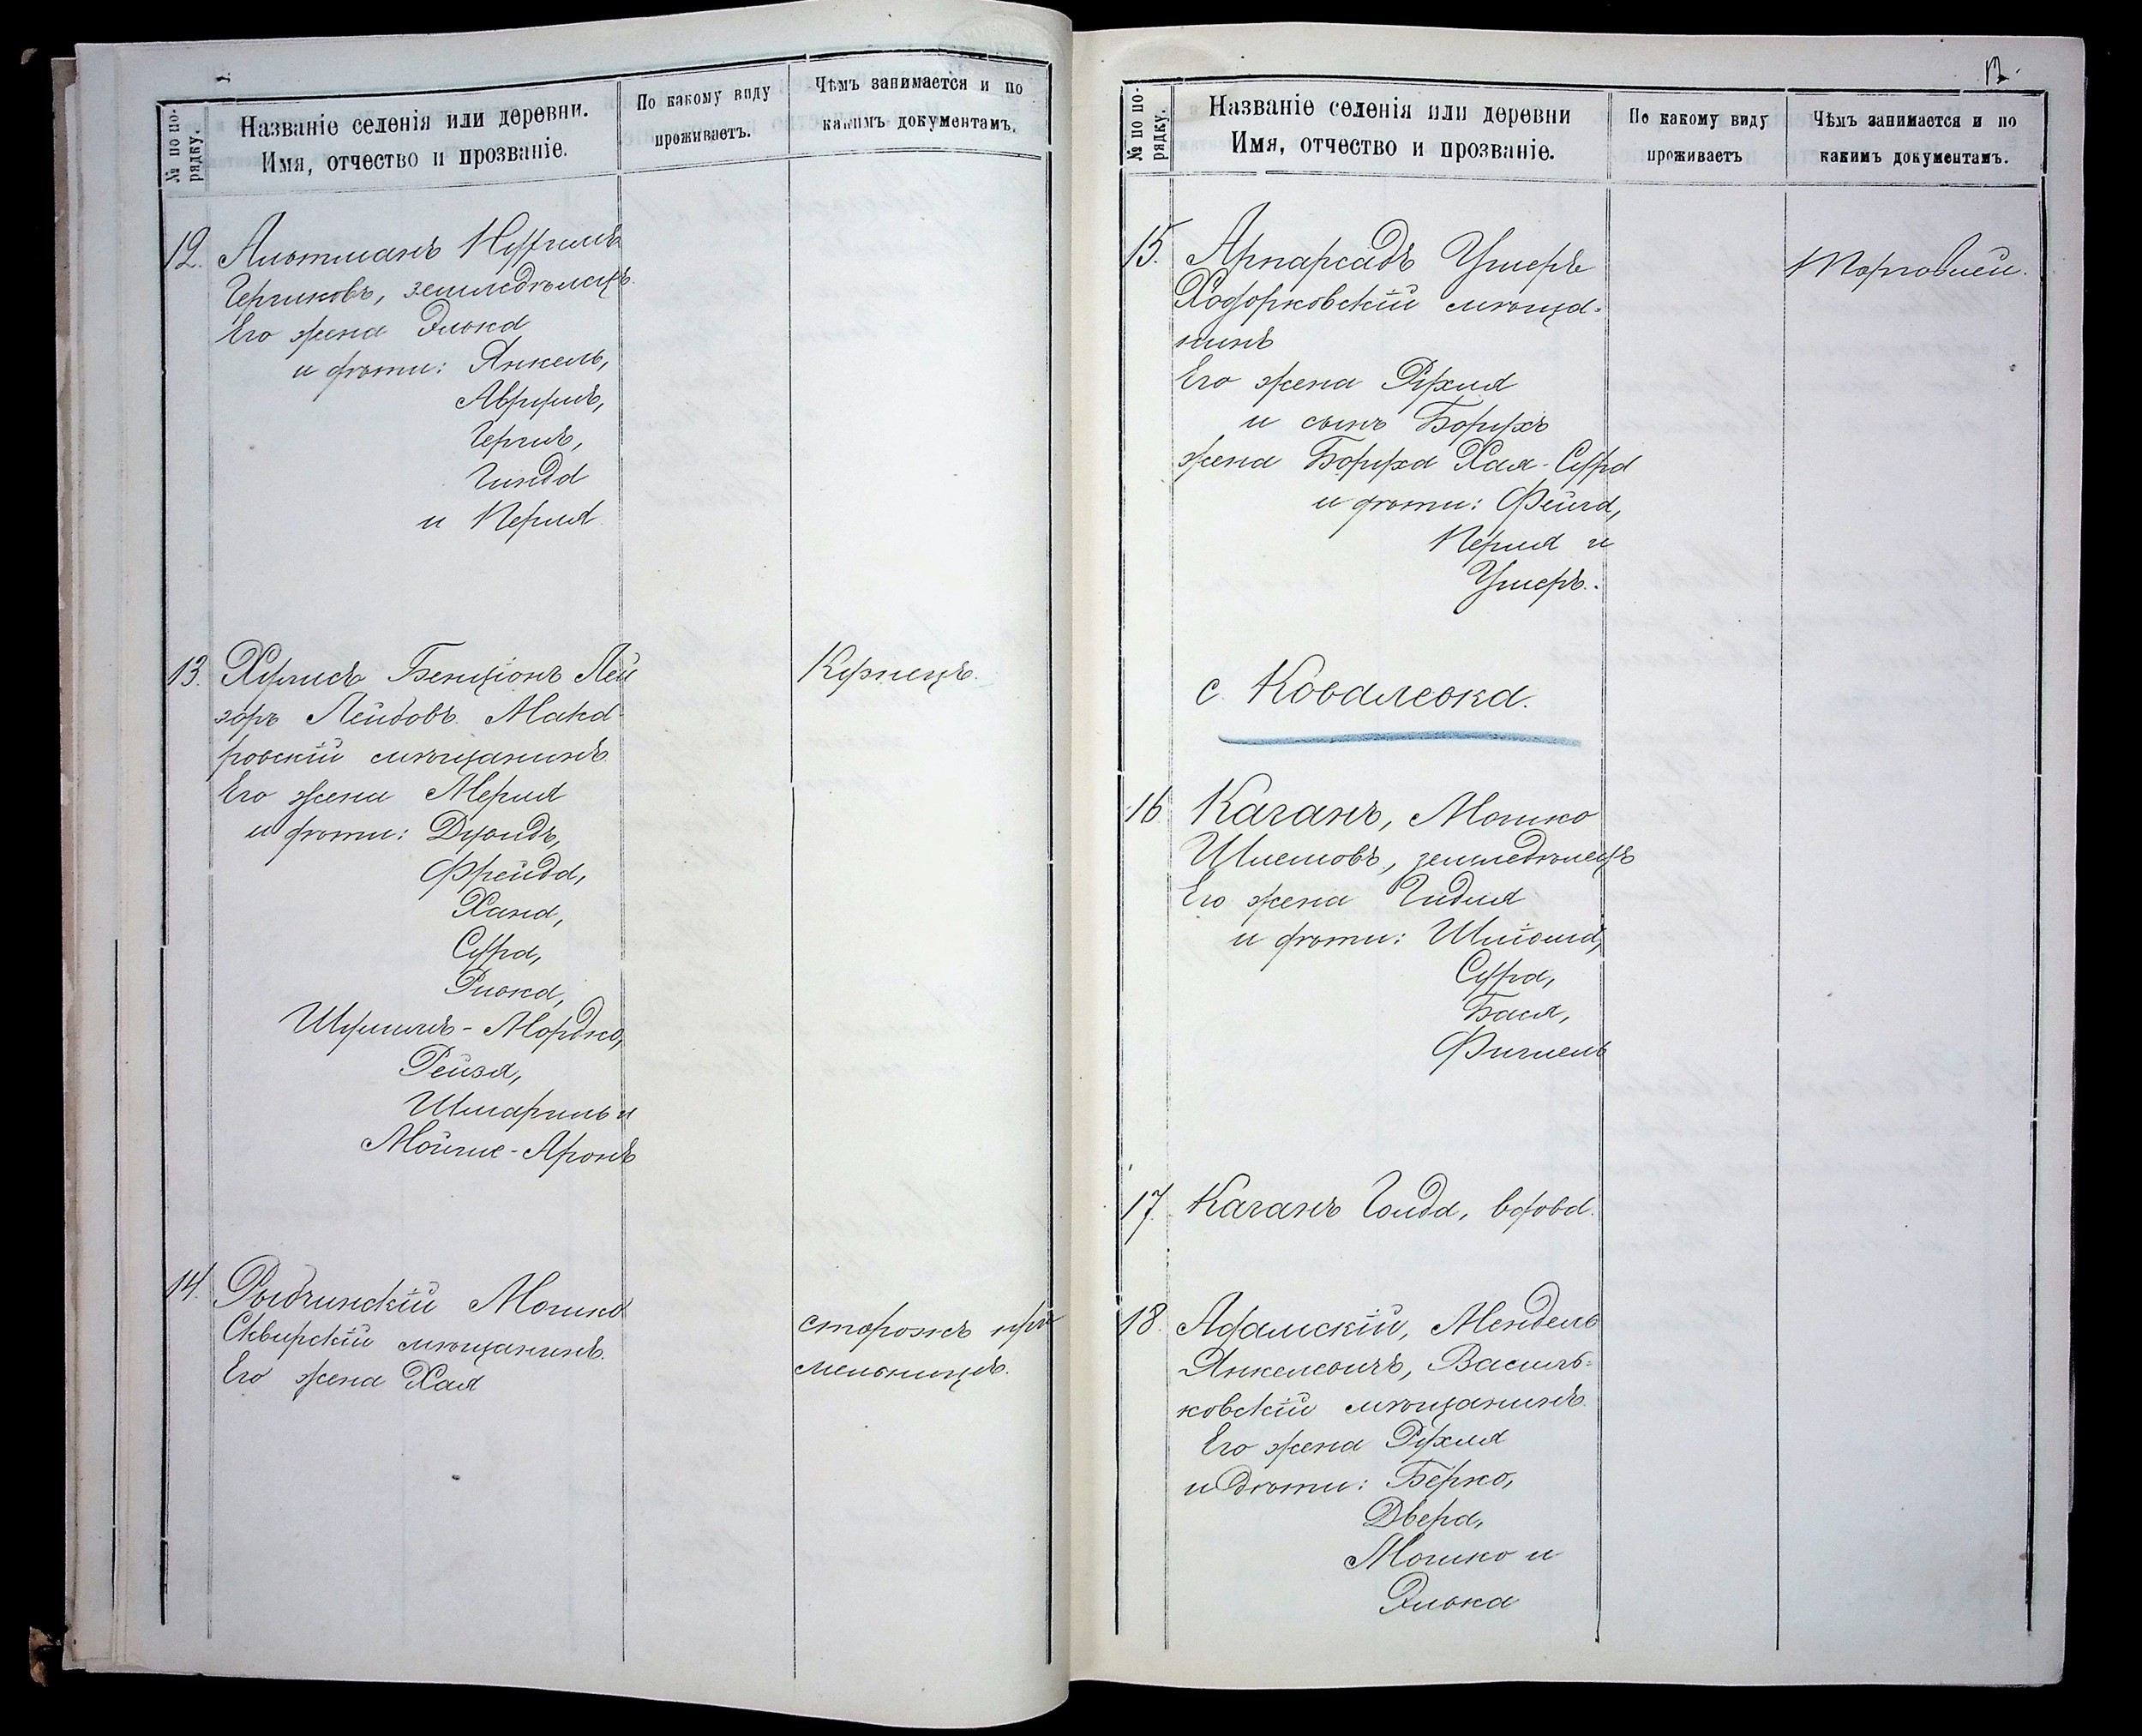 № по по-
рядку.
Названіе селенія или деревни.
Имя, отчество и прозваніе.
По какому виду
проживаетъ.
Чѣмъ занимается и по
какимъ документамъ.
12. Альтманъ Нухимъ
Гершковъ, земледѣлецъ.
Его жена Элька
и дѣти: Янкель,
Аврумъ,
Гершъ,
Гинда
и Перля
13. Хуглисъ Бенціонъ Лей
зоръ Лейбовъ. Мака-
ровскій мѣщанинъ
Его жена Мерля
и дѣти: Дувидъ,
Фрейда,
Хана,
Сура,
Ривка,
Шумиль-Мордко,
Рейзя,
Шмариль и
Мойше-Аронъ
Купецъ.
14. Рыбчинскій Мошко
Сквирскій мѣщанинъ.
Его жена Хая
сторожъ при
мельницѣ.
12.
№ по по-
рядку.
Названіе селенія или деревни
Имя, отчество и прозваніе.
По какому виду
проживаетъ
Чѣмъ занимается и по
какимъ документамъ.
15. Арпарсадъ Ушеръ
Ходорковскій мѣща-
нинъ
Его жена Рухля
и сынъ Борухъ
жена Боруха Хая-Сура
и дѣти: Фейга,
Перля и
Ушеръ.
Торговлей.
с. Ковалевка.
16 Каганъ, Мошко
Шлемовъ, земледѣлецъ
Его жена Гидля
и дѣти: Шлёма,
Сура,
Бася,
Фишель
17. Каганъ Голда, вдова.
18. Адамскій, Мендель
Янкелевичъ, Василь-
ковскій мѣщанинъ.
Его жена Рухля
и дѣти: Берко,
Двера,
Мошко и
Элька